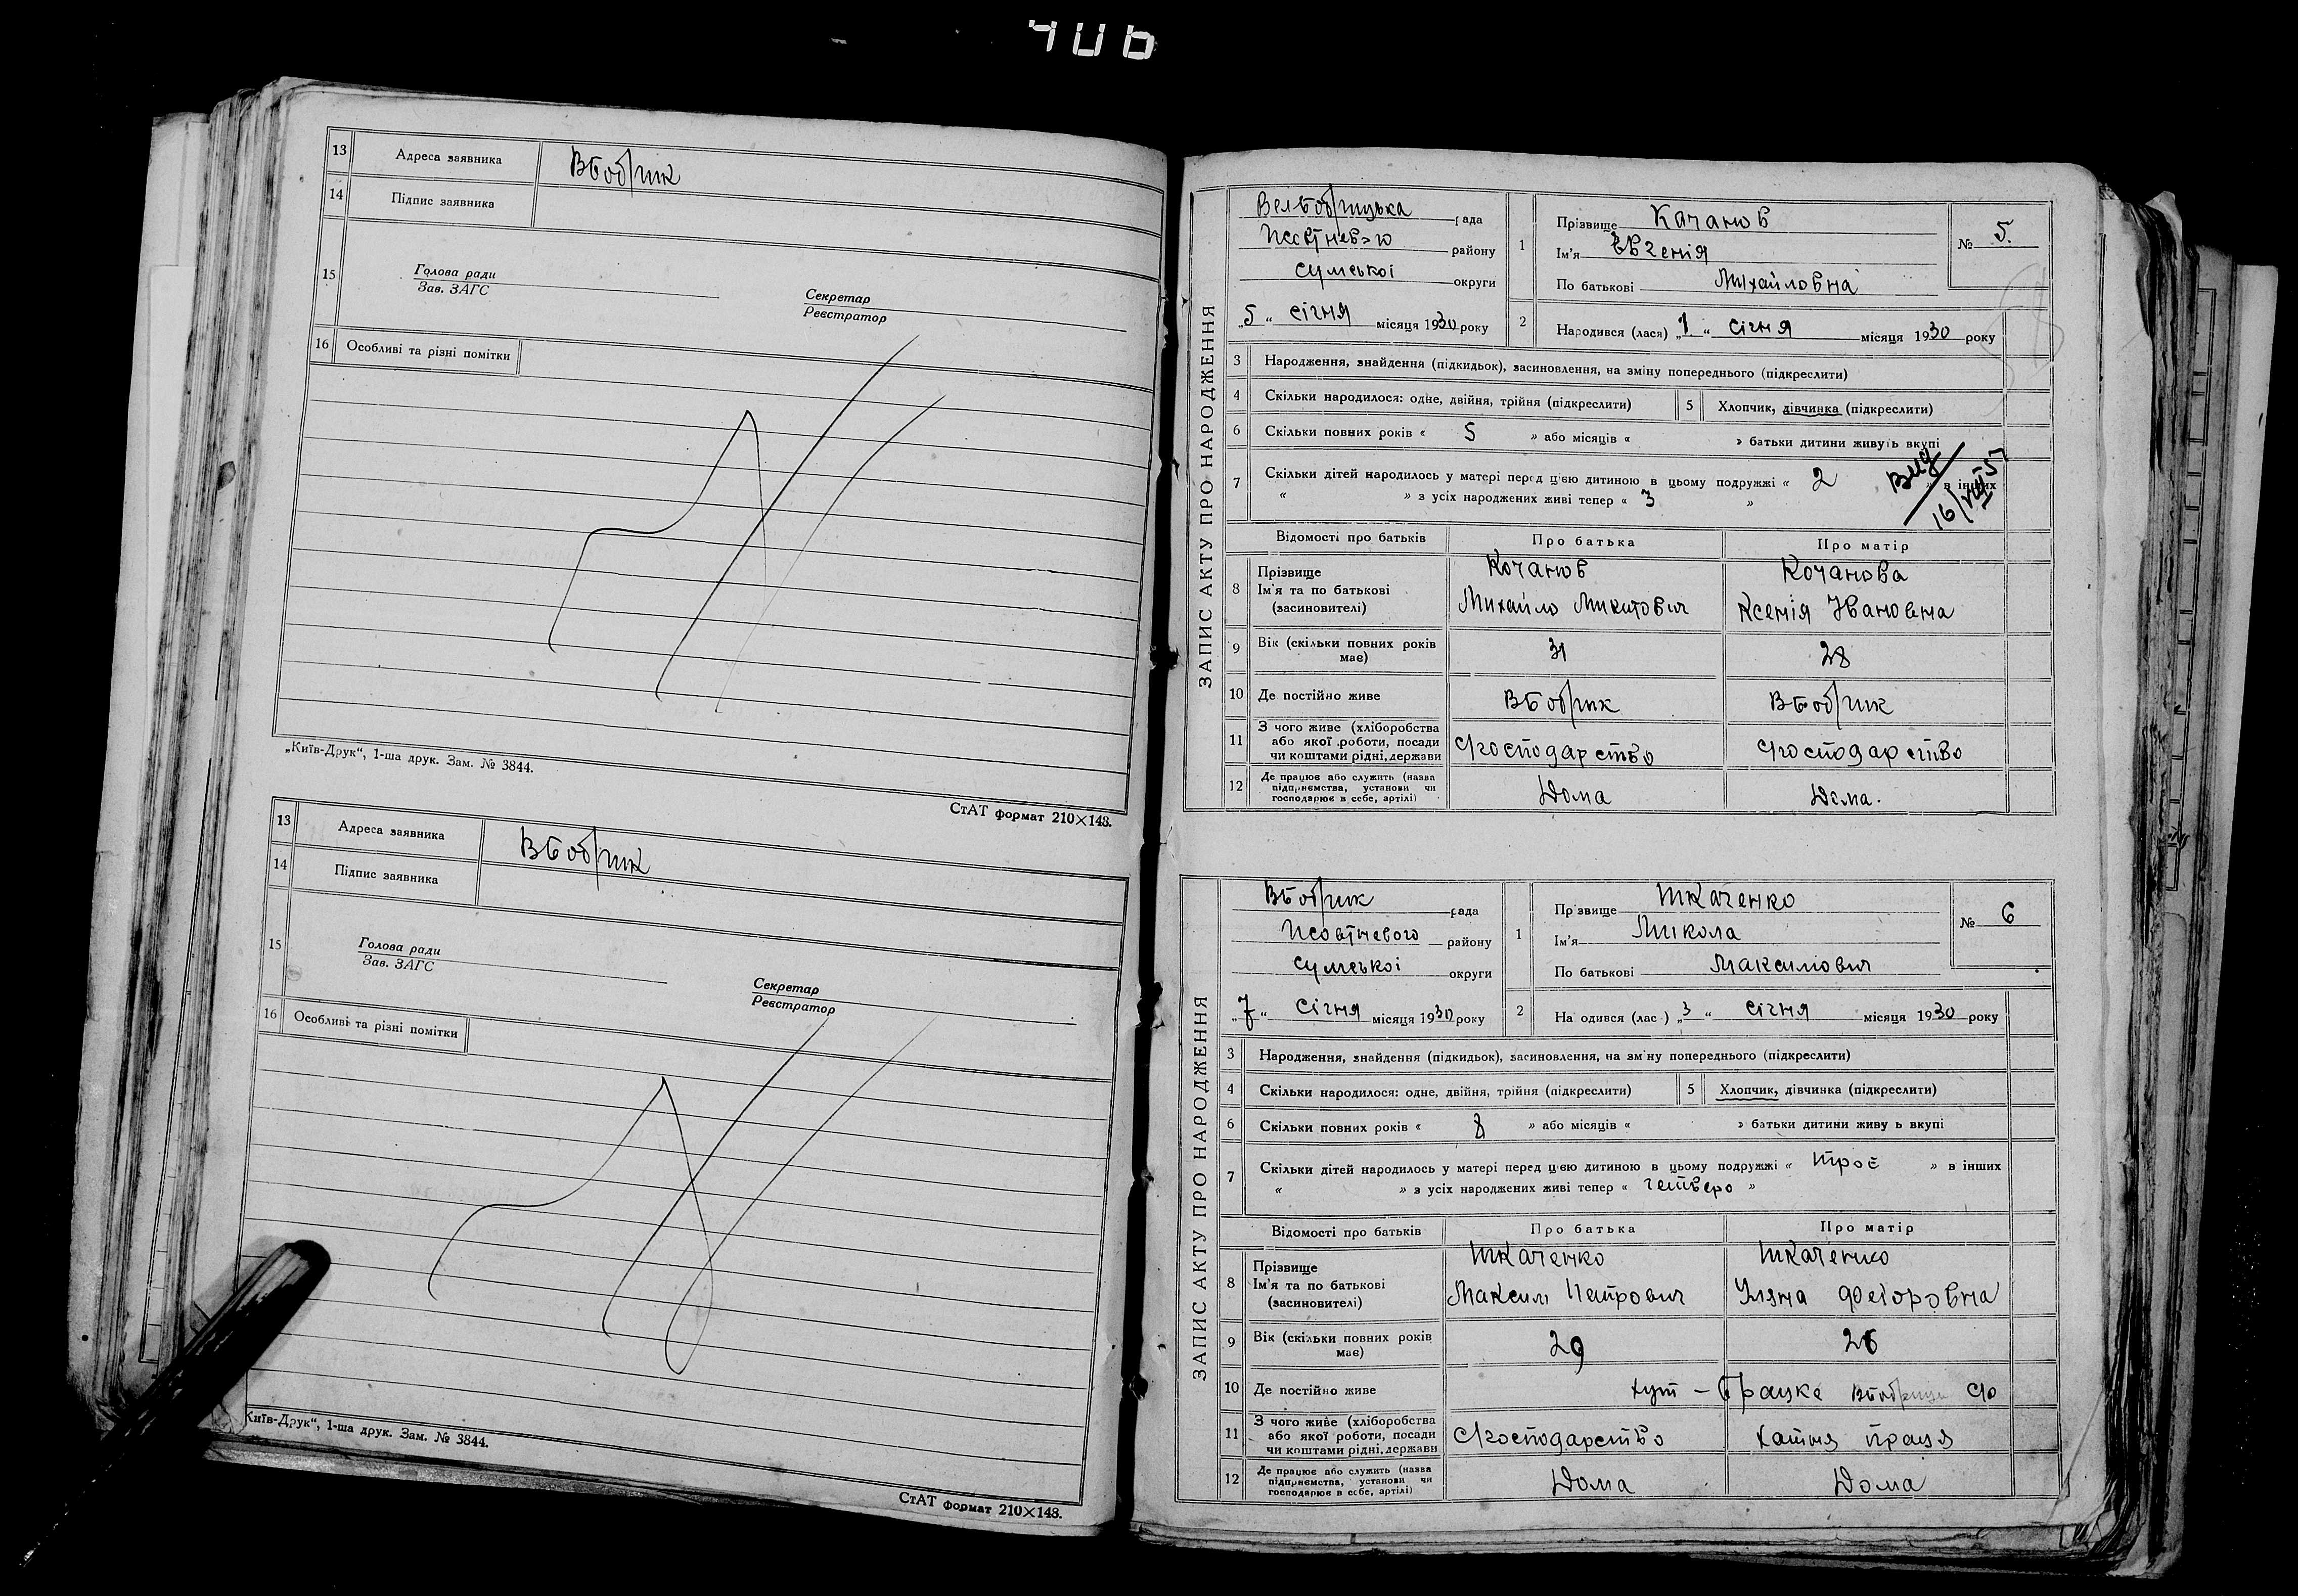 406
13 Адреса заявника ВБобрик
14 Підпис заявника
15 Голова ради
Зав. ЗАГС
Секретар
Реєстратор
16 Особливі та різні помітки
„Київ-Друк“, 1-ша друк. Зам. № 3844.
СтАТ формат 210×148.
13 Адреса заявника ВБобрик
14 Підпис заявника
15 Голова ради
Зав. ЗАГС
Секретар
Реєстратор
16 Особливі та різні помітки
Київ-Друк“, 1-ша друк. Зам. № 3844.
СтАТ формат 210×148.
ЗАПИС АКТУ ПРО НАРОДЖЕННЯ
ВелБобрицька рада
району
Сумської округи
„5“ січня місяця 1930 року
1 Прізвище Качанов
Ім'я Євгенія
По батькові Михайловна
№ 5.
2 Народився (лася) „1“ січня місяця 1930 року
3 Народження, знайдення (підкидьок), засиновлення, на зміну попереднього (підкреслити)
4 Скільки народилося: одне, двійня, трійня (підкреслити)
5 Хлопчик, дівчинка (підкреслити)
6 Скільки повних років « 5 » або місяців « » батьки дитини живуть вкупі
7 Скільки дітей народилось у матері перед цією дитиною в цьому подружжі « 2 » в інших
« » з усіх народжених живі тепер « 3 »
Вид
16/VIII 57
Відомості про батьків Про батька Про матір
8 Прізвище Качанов Качанова
Ім'я та по батькові Михайло Микитович Ксенія Івановна
(засиновителі)
9 Вік (скільки повних років має) 31 28
10 Де постійно живе ВБобрик ВБобрик
11 З чого живе (хліборобства
або якої роботи, посади
чи коштами рідні, держави С/господарство С/господарство
12 Де працює або служить (назва
підприємства, установи чи
господарює в себе, артілі) Дома Дома.
ЗАПИС АКТУ ПРО НАРОДЖЕННЯ
ВБобрик рада
Жовтневого району
Сумської округи
„7“ січня місяця 1930 року
1 Прізвище Ткаченко
Ім'я Микола
По батькові Максимович
№ 6
2 На одився (лас ) „3“ січня місяця 1930 року
3 Народження, знайдення (підкидьок), засиновлення, на зміну попереднього (підкреслити)
4 Скільки народилося: одне, двійня, трійня (підкреслити)
5 Хлопчик, дівчинка (підкреслити)
6 Скільки повних років « 8 » або місяців « » батьки дитини живу ь вкупі
7 Скільки дітей народилось у матері перед цією дитиною в цьому подружжі « троє » в інших
« » з усіх народжених живі тепер « четверо »
Відомості про батьків Про батька Про матір
8 Прізвище Ткаченко Ткаченко
Ім'я та по батькові Максим Петрович Уляна Федоровна
(засиновителі)
9 Вік (скільки повних років має) 29 26
10 Де постійно живе хут –
11 З чого живе (хліборобства
або якої роботи, посади
чи коштами рідні, держави С/господарство хатня праця
12 Де працює або служить (назва
підприємства, установи чи
господарює в себе, артілі) Дома Дома